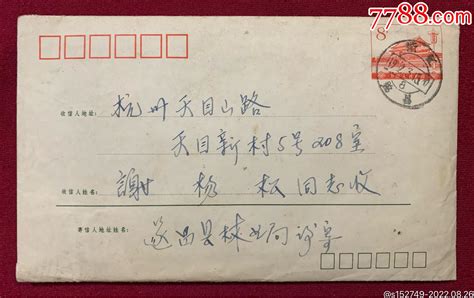 7788.com
8
收信人地址:
杭州天目山路
天目新村5号208室
收信人姓名:
謝 杨 松同志收
寄信人地址姓名:
遂昌县林业局
@s152749-2022.08.26